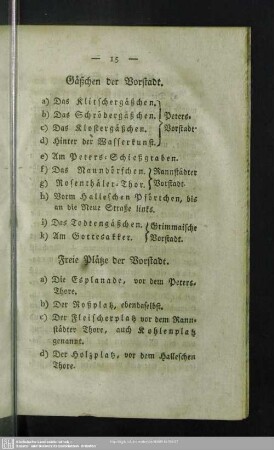 — 15 —
Gäßchen der Vorstadt.
a) Das Klitschergäßchen.
b) Das Schrödergäßchen. Peters-
c) Das Klostergäßchen. Vorstadt.
d) Hinter der Wasserkunst.
e) Am Peters-Schießgraben.
f) Das Naundörfchen. Rannstädter
g) Rosenthäler-Thor. Vorstadt.
h) Vorm Halleschen Pförtchen, bis
an die Neue Straße links.
i) Das Todtengäßchen. Grimmaische
k) Am Gottesakker. Vorstadt.
Freie Plätze der Vorstadt.
a) Die Esplanade, vor dem Peters-
Thore.
b) Der Roßplatz, ebendaselbst.
c) Der Fleischerplatz vor dem Rann-
städter Thore, auch Kohlenplatz
genannt.
d) Der Holzplatz, vor dem Halleschen
Thore.